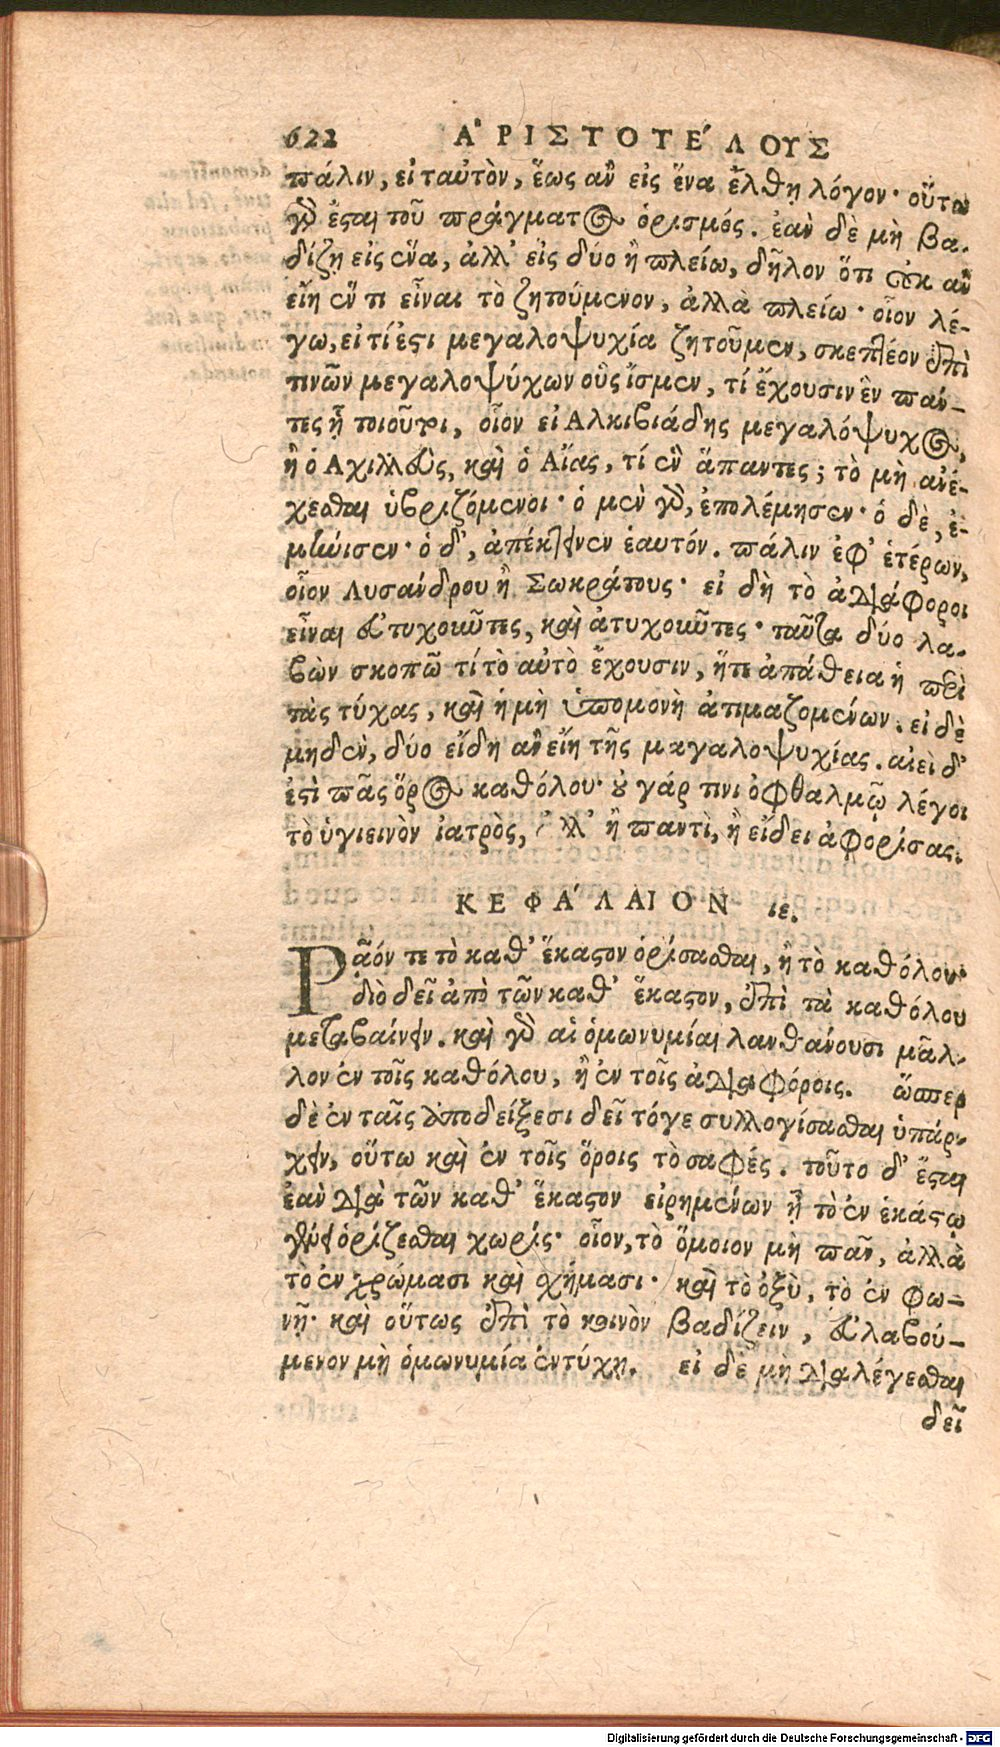 622 ἈΡΙΣΤΟΤΕ´ΛΟΥΣ
πάλιν, εἰ ταὐτὸν, ἕως ἂν εἰς ἕνα ἔλθῃ λόγον· οὕτω
γὰρ ἔσται τοῦ πράγματος ὁρισμός. ἐὰν δὲ μὴ βα-
δίζῃ εἰς ἕνα, ἀλλ' εἰς δύο ἢ πλείω, δῆλον ὅτι οὐκ ἂν
εἴη ἕν τι εἶναι τὸ ζητούμενον, ἀλλὰ πλείω· οἷον λέ-
γω, εἰ τί ἐστι μεγαλοψυχία ζητοῦμεν, σκεπτέον ἐπὶ
τινῶν μεγαλοψύχων οὓς ἴσμεν, τί ἔχουσιν ἓν πάν-
τες ᾗ τοιοῦτοι, οἷον εἰ Αλκιβιάδης μεγαλόψυχος,
ἢ ὁ Αχιλλεὺς, καὶ ὁ Αἴας, τί ἓν ἅπαντες; τὸ μὴ ἀνέ-
χεσθαι ὑβριζόμενοι· ὁ μὲν γὰρ, ἐπολέμησεν· ὁ δὲ, ἐ-
μήνισεν· ὁ δ', ἀπέκτεινεν ἑαυτόν. πάλιν ἐφ' ἑτέρων,
οἷον Λυσάνδρου ἢ Σωκράτους· εἰ δὴ τὸ ἀδιάφοροι
εἶναι εὐτυχοῦντες, καὶ ἀτυχοῦντες· ταῦτα δύο λα-
βὼν σκοπῶ τί τὸ αὐτὸ ἔχουσιν, ἥτε ἀπάθεια ἡ περὶ
τὰς τύχας, καὶ ἡ μὴ ὑπομονὴ ἀτιμαζομένων. εἰ δὲ
μηδὲν, δύο εἴδη ἂν εἴη τῆς μεγαλοψυχίας. αἰεὶ δ'
ἐστὶ πᾶς ὅρος καθόλου· οὐ γάρ τινι ὀφθαλμῷ λέγει
τὸ ὑγιεινὸν ἰατρὸς, ἀλλ' ἢ παντὶ, ἢ εἴδει ἀφορίσας.
ΚΕΦΑ´ΛΑΙΟΝ ιε.
Ρᾷόν τε τὸ καθ' ἕκαστον ὁρίσασθαι, ἢ τὸ καθόλου·
διὸ δεῖ ἀπὸ τῶν καθ' ἕκαστον, ἐπὶ τὰ καθόλου
μεταβαίνειν. καὶ γὰρ αἱ ὁμωνυμίαι λανθάνουσι μᾶλ-
λον ἐν τοῖς καθόλου, ἢ ἐν τοῖς ἀδιαφόροις. ὥσπερ
δὲ ἐν ταῖς ἀποδείξεσι δεῖ τόγε συλλογίσασθαι ὑπάρ-
χειν, οὕτω καὶ ἐν τοῖς ὅροις τὸ σαφές. τοῦτο δ' ἔσται
ἐὰν διὰ τῶν καθ' ἕκαστον εἰρημένων ᾖ τὸ ἐν ἑκάστῳ
γένει ὁρίζεσθαι χωρίς· οἷον, τὸ ὅμοιον μὴ πᾶν, ἀλλὰ
τὸ ἐν χρώμασι καὶ σχήμασι· καὶ τὸ ὀξὺ, τὸ ἐν φω-
νῇ· καὶ οὕτως ἐπὶ τὸ κοινὸν βαδίζειν, εὐλαβού-
μενον μὴ ὁμωνυμία ἐντύχῃ. εἰ δὲ μὴ διαλέγεσθαι
δεῖ
Digitalisierung gefördert durch die Deutsche Forschungsgemeinschaft - DFG